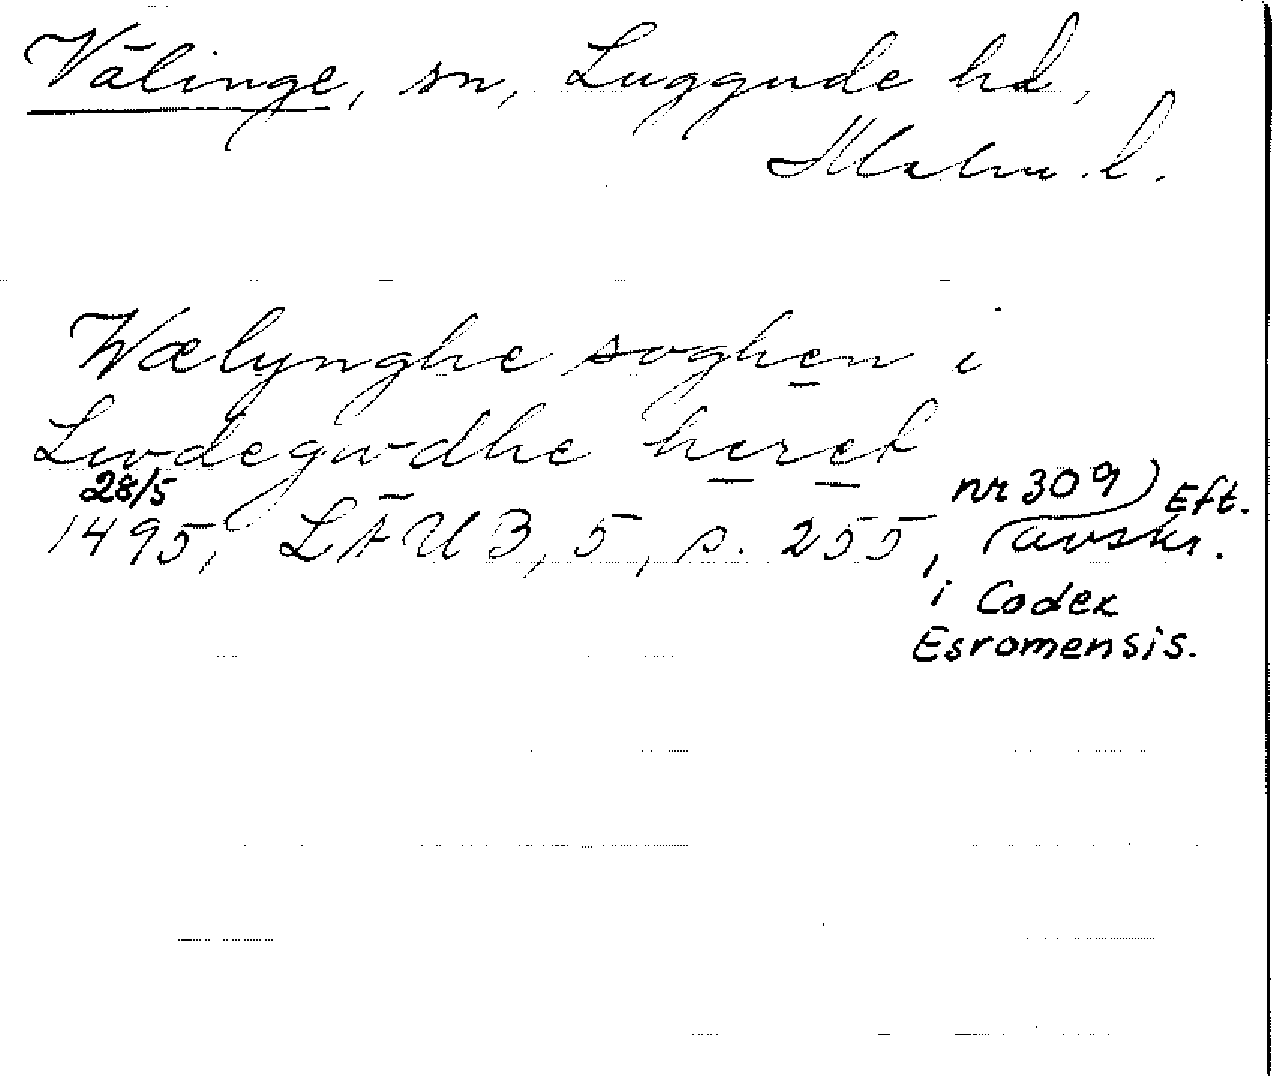 Välinge, sn, Luggude hd,
Malm. l.
Wælynghe soghen i
Lwdegwdhe heret
28/5 nr 309) Eft.
1495, LÄUB, 5, s. 255, avskr.
i Codex
Esromensis.